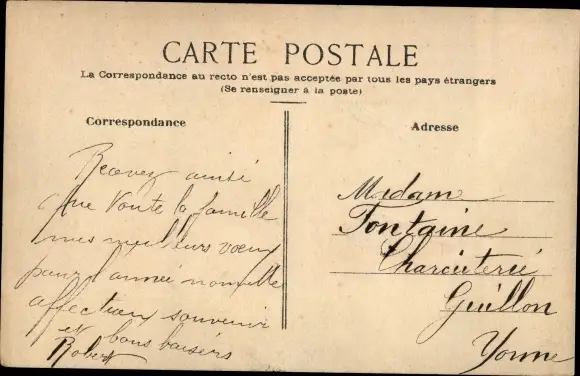 CARTE POSTALE
La Correspondance au recto n'est pas acceptée par tous les pays étrangers
(Se renseigner à la poste)
Correspondance
Recevez ainsi
que toute la famille
mes meilleurs voeux
pour l'année nouvelle
affectueux souvenir
et bons baisers
Robert
Adresse
Madame
Fontaine
Charcuterie
Guillon
Yonne